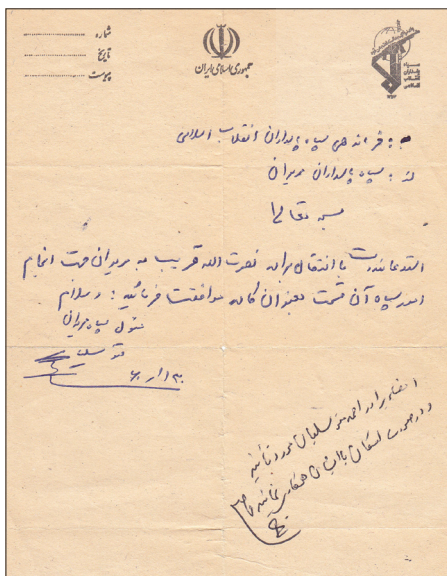 شماره
تاریخ
پیوست
جمهوری اسلامی ایران
به: فرماندهی سپاه پاسداران انقلاب اسلامی
از: سپاه پاسداران مریوان
بسمه تعالی
استدعا با انتقال برادر نصرت الله قریب به مریوان جهت انجام
امور سپاه آن قسمت بعنوان موافقت فرمائید. والسلام
مسئول سپاه مریوان
امضاء برادر احمد متوسلیان مورد تائید
و در صورت امکان با ایشان همکاری نمائید